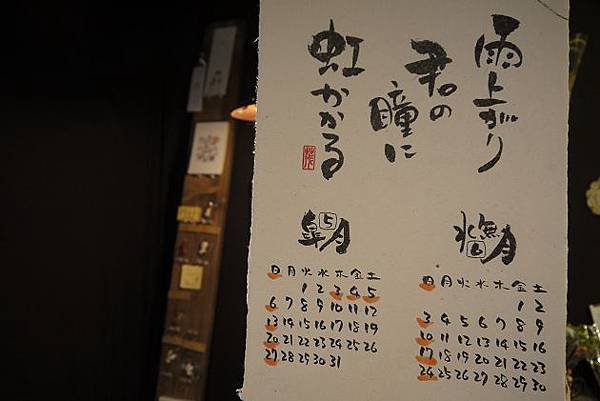 雨上がり
君の
瞳に
虹かかる
皐月
5
日 月 火 水 木 金 土
1 2 3 4 5
6 7 8 9 10 11 12
13 14 15 16 17 18 19
20 21 22 23 24 25 26
27 28 29 30 31
水無月
6
日 月 火 水 木 金 土
1 2
3 4 5 6 7 8 9
10 11 12 13 14 15 16
17 18 19 20 21 22 23
24 25 26 27 28 29 30